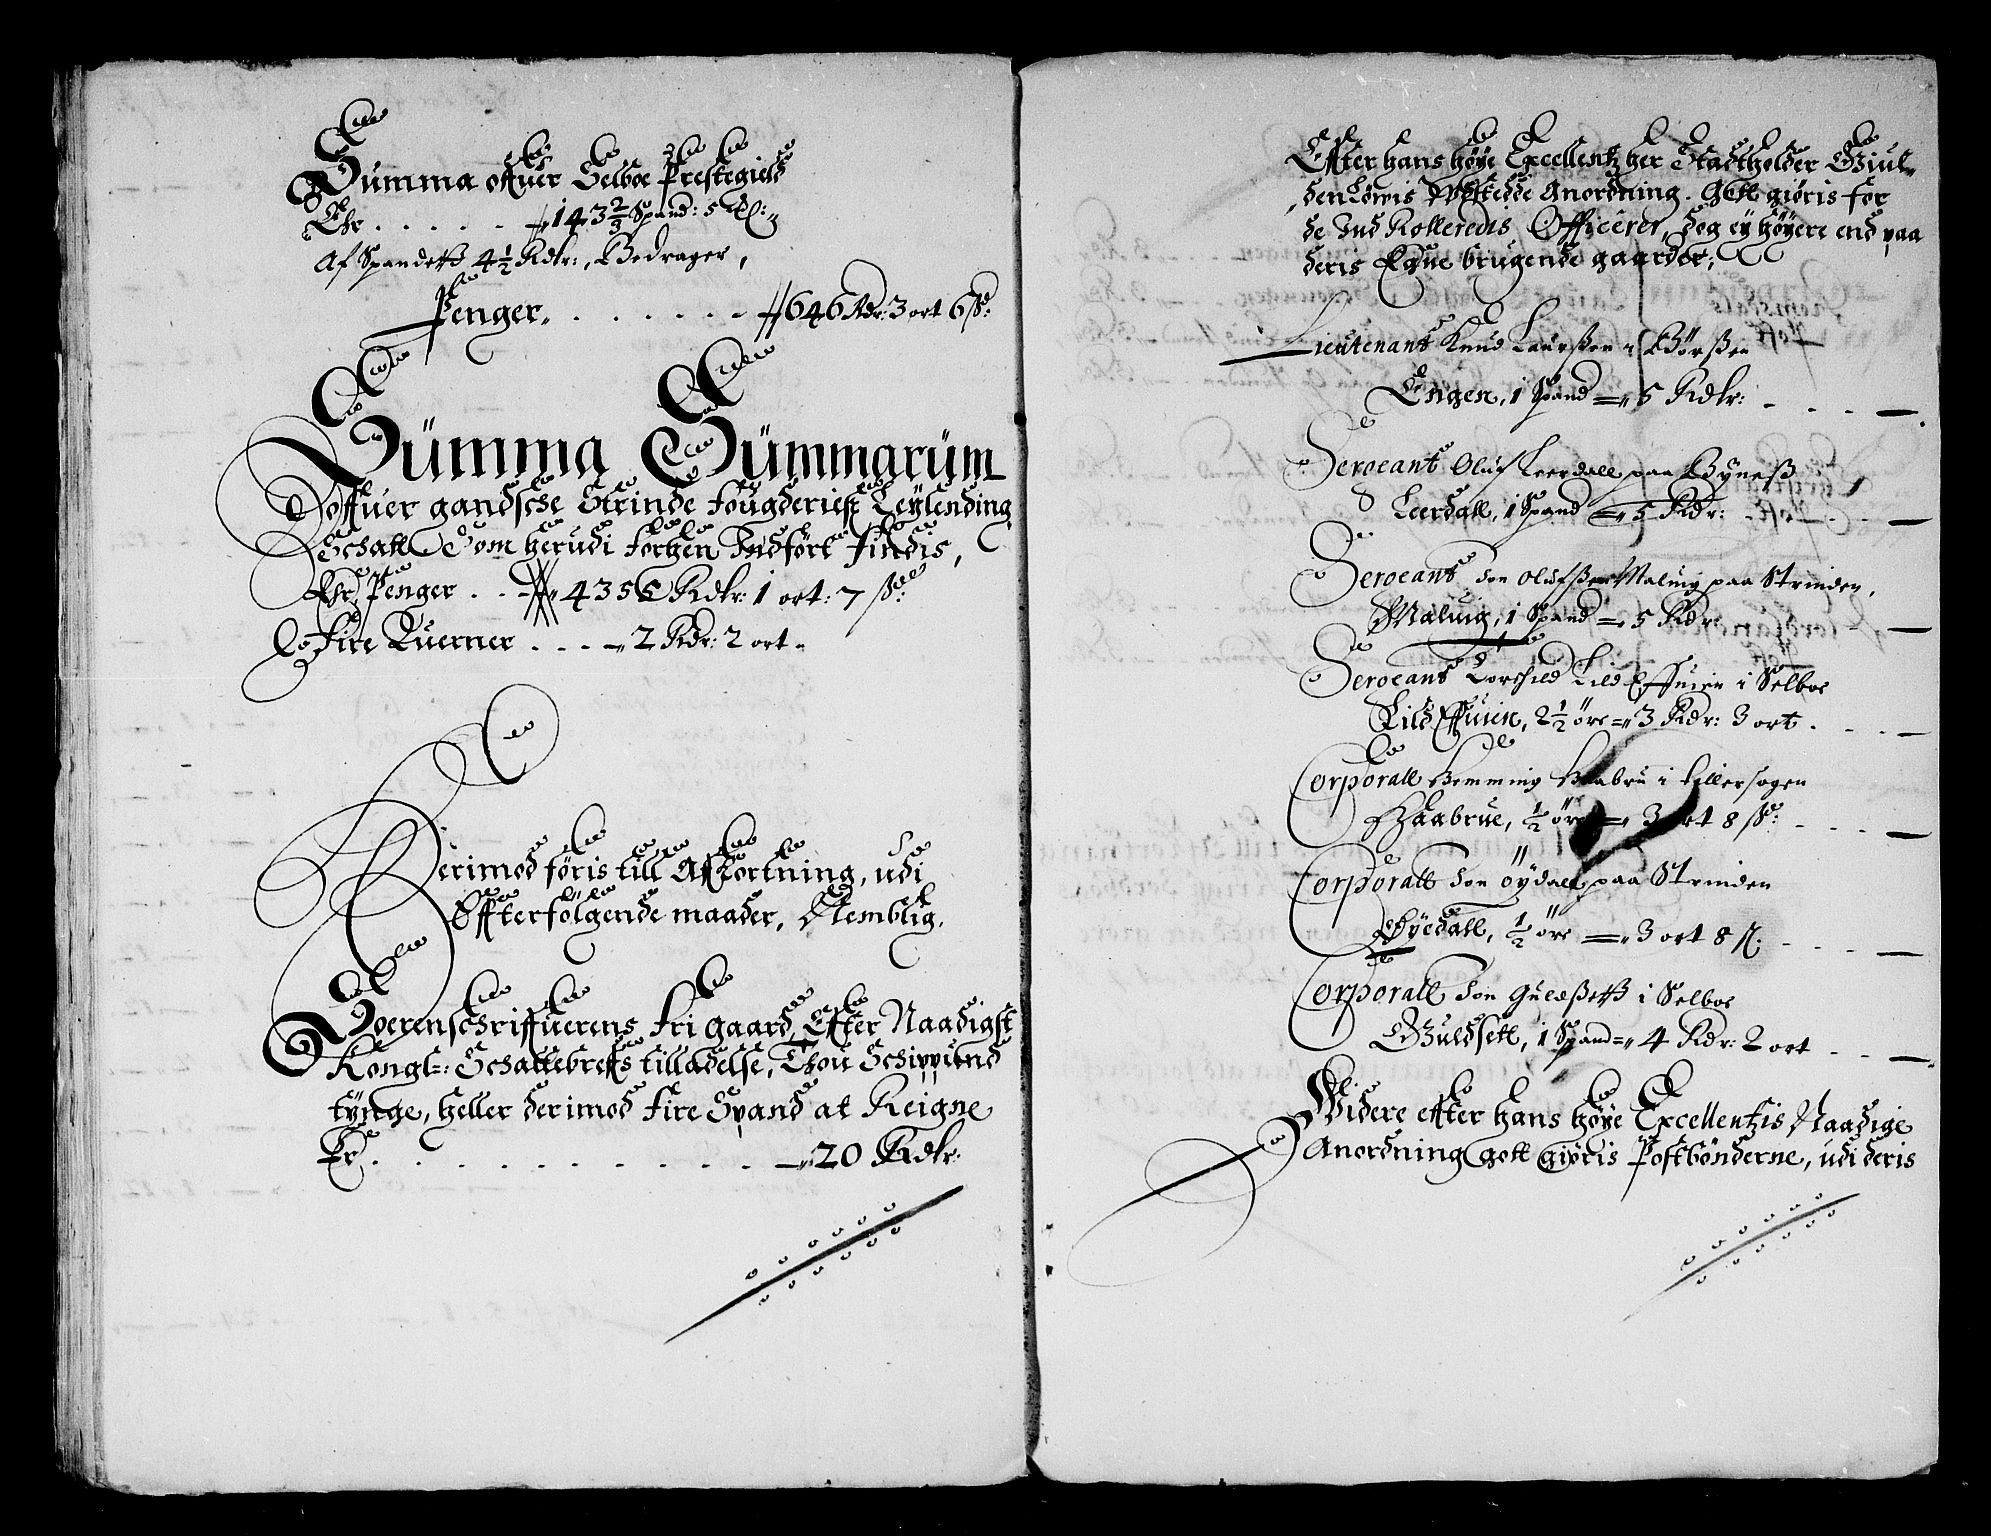 Summa offuer Selboe Prestegield
Ehr . . . . . 143 2/3 Spand: 5
Af Spandett 4 1/2 Rdlr: Bedrager,
Penger . . . . . . 646 Rdr: 3 ort 6 ß:
Summa Summarum
offuer gandsche Strinde Fougderiets Leylending
Schatt Som herudi forhen Indført findis,
Ehr Penger . . 435 Rdlr: 1 ort: 7 ß:
Fire Querner . . . 2 Rdr: 2 ort
Derimod føris till Affkortning, udi
Effterfølgende maader, Nemblig.
Soerenschriffuerens fri gaard, Efter Naadigst
Kongl: Schattebreffs tilladelse, Thou Schippund
tynge, heller derimod fire Spand at Reigne
Er . . . . . . . . . . . . 20 Rdlr:
Efter hans høye Excellentz her Stadtholder Giul-
denLøwis Anordning. Gott giøris for
de Ind Rolleredis Officerer, dog ey høyere end paa
deris Egne brugende gaarder;
Lieutenant Knud Laurßen i Børßen
Engen, 1 Spand = 5 Rdlr: . . . .
Sergeant Oluf Leerdall paa Byneß
Leerdall, 1 Spand = 5 Rdr: . . . .
Sergeant Jon Olufßen Maluig paa Strinden,
Maluig, 1 Spand = 5 Rdr:
Sergeant Torchild Lild Effuien i Selboe
Lild Effuien, 2 1/2 øre = 3 Rdr: 3 ort . . . .
Corporall Hemming Haabru i Tillersogen
Haabrue, 1/2 øre = 3 ort 8 ß: . . . .
Corporall Jon Øydall paa Strinden
Øyedall, 1/2 øre = 3 ort 8 ß: . . . .
Corporall Jon Guldßett i Selboe
Guldsett, 1 Spand = 4 Rdr: 2 ort . . .
Widere efter hans høye Excellentzis Naadige
Anordning gott giøris Postbønderne, udi deris